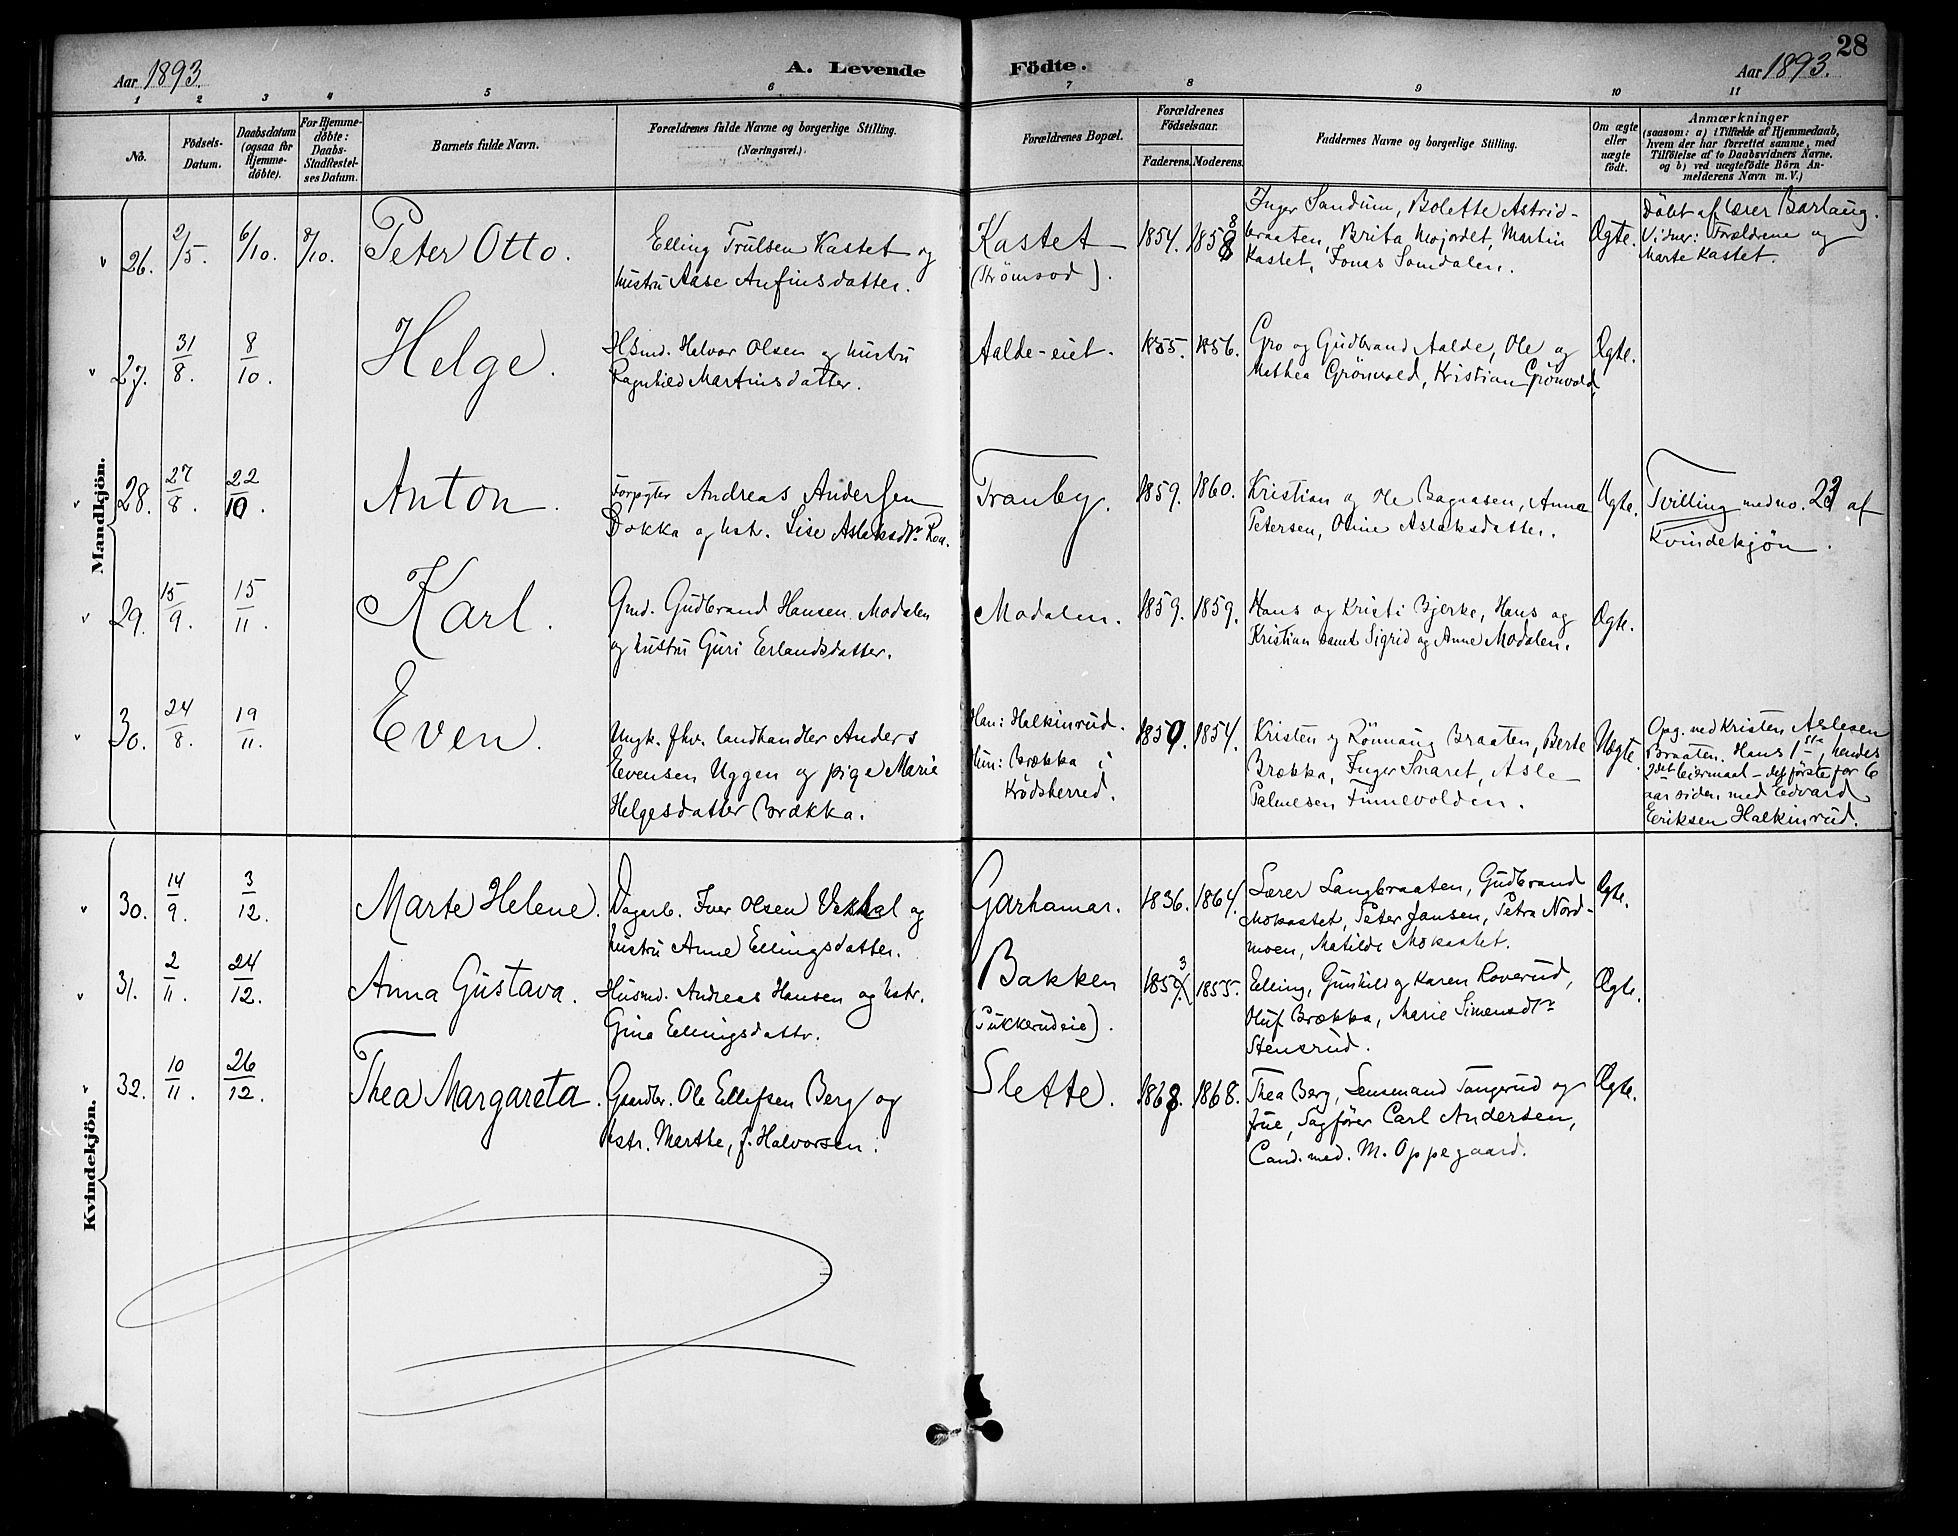 28
Aar 1893.
A. Levende Födte.
Aar 1893.
1 2 3 4 5 6 7 8 9 10 11
No.
Födsels-
Datum.
Daabsdatum
(ogsaa for
Hjemme-
döbte).
For Hjemme-
döbte:
Daabs-
Stadfæstel-
ses Datum.
Barnets fulde Navn.
Forældrenes fulde Navne og borgerlige Stilling.
(Næringsvei.)
Forældrenes Bopæl.
Forældrenes
Födselsaar.
Faderens. Moderens.
Faddernes Navne og borgerlige Stilling.
Om ægte
eller
uægte
födt.
Anmærkninger
(saasom: a) i Tilfælde af Hjemmedaab,
hvem der har forrettet samme, med
Tilföielse af to Daabsvidners Navne,
og b) ved uægtefödte Börn An-
melderens Navn m. V.)
Mandkjön.
26. 2/5. 6/10. 8/10. Peter Otto.
Elling Trulsen Kastet og
hustru Aase Anfinsdatter.
Kastet
(Strömsod).
1854. 1858 8
Inger Sandum, Bolette Astrid-
braaten, Brita Mojordet, Martin
Kastet, Jonas Somdalen.
Ægte.
Döbt af lærer Barlaug.
Vidner: Forældrene og
Marte Kastet.
27. 31/8. 8/10. Helge.
Hsmd. Halvor Olsen og hustru
Ragnhild Martinsdatter.
Aalde-eiet.
1855. 1856.
Gro og Gudbrand Aalde, Ole og
Mathea Grönvold, Kristian Grönvold.
Ægte.
28. 27/8. 22/10. Anton.
Forpgter Andreas Andersen
Dokka og hstr. Lise Aslaksdtr Roa.
Tranby.
1859. 1860.
Kristian og Ole Bagaasen, Anna
Petersen, Oline Aslaksdatter.
Ægte.
Tvilling med no. 23 af
Kvindekjön.
29. 15/9. 15/11. Karl.
Gmd. Gudbrand Hansen Modalen
og hustru Guri Erlandsdatter.
Modalen.
1859. 1859.
Hans og Kristi Bjerke, Hans og
Kristian samt Sigrid og Anne Modalen.
Ægte.
30. 24/8. 19/11. Even.
Ungk. fhv. landhandler Anders
Evensen Uggen og pige Marie
Helgesdatter Brække.
Han: Halkinrud.
Hun: Brækka i
Krödsherred.
1850. 1854.
Kristen og Rönnaug Braaten, Berte
Brækka, Inger Snaret, Asle
Palmesen Finnevolden.
Uægte.
Opg. ved Kristen Aslesen
Braaten. Hans 1ste, hendes
2det leiermaal – det förste for 6
aar siden med Edvard
Eriksen Halkinrud.
Kvindekjön.
30. 14/9. 3/12. Marte Helene.
Dagarb. Iver Olsen Vekhal og
hustru Anne Ellingsdatter.
Garhamar.
1836. 1864.
Lærer Langbraaten, Gudbrand
Mokastet, Peter Jansen, Petra Nord-
moen, Matilde Mokastet.
Ægte.
31. 2/11. 24/12. Anna Gustava.
Husmd. Andreas Hansen og hstr.
Gina Ellingsdattr.
Bakken
(Pukkerudeie).
1853 1855.
Elling, Gunhild og Karen Roverud,
Oluf Brækka, Marie Simensdtr
Stensrud.
Ægte.
32. 10/11. 26/12. Thea Margareta.
Gaardbr. Ole Ellefsen Berg og
hstr. Marthe, f. Halvorsen.
Slette.
1868. 1868.
Thea Berg, Lensmand Tangerud og
frue, Sagförer Carl Andersen,
Cand. med. M. Oppegaard.
Ægte.